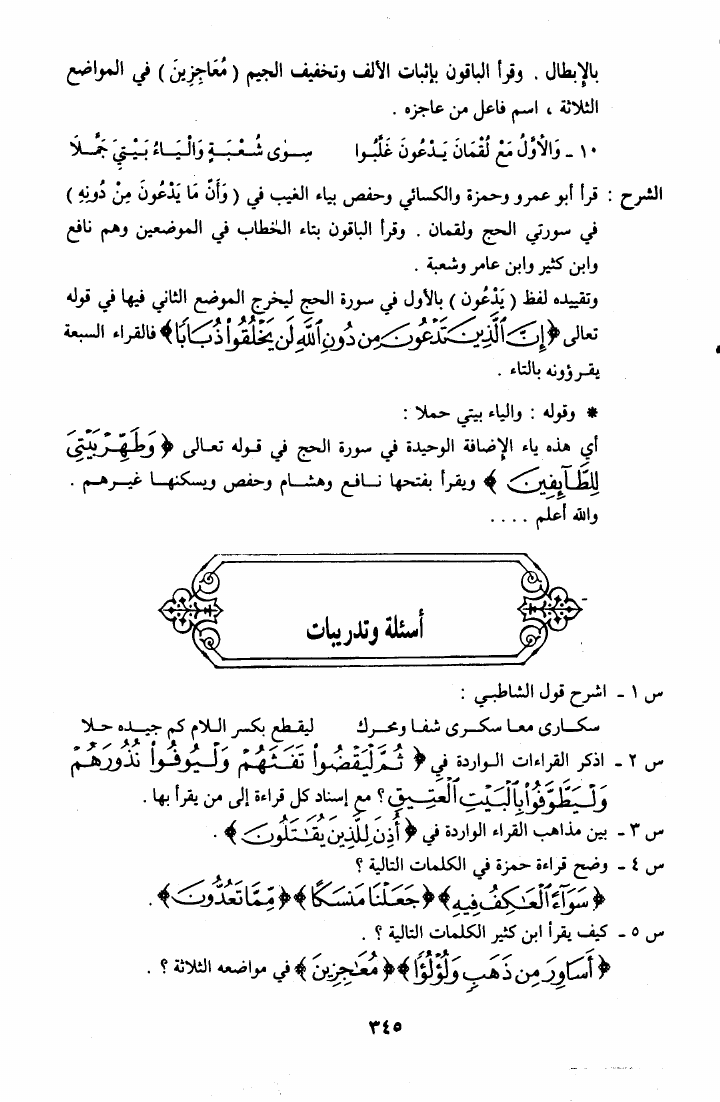 بالإبطال . وقرأ الباقون بإثبات الألف وتخفيف الجيم ( مُعَاجِزِينَ ) في المواضع
الثلاثة ، اسم فاعل من عاجزه .
١٠ ـ وَالْأَوَّلُ مَعْ لُقْمَانَ يَدْعُونَ غَلَّبُوا سِوَى شُعْبَةٍ وَالْيَاءُ بَيْتِيَ جَمَّلَا
الشرح : قرأ أبو عمرو وحمزة والكسائي وحفص بياء الغيب في ( وَأَنَّ مَا يَدْعُونَ مِنْ دُونِهِ )
في سورتي الحج ولقمان . وقرأ الباقون بتاء الخطاب في الموضعين وهم نافع
وابن كثير وابن عامر وشعبة .
وتقييده لفظ ( يَدْعُون ) بالأول في سورة الحج ليخرج الموضع الثاني فيها في قوله
تعالى ﴿إِنَّ ٱلَّذِينَ تَدْعُونَ مِن دُونِ ٱللَّهِ لَن يَخْلُقُوا۟ ذُبَابًا﴾ فالقراء السبعة
يقرؤونه بالتاء .
* وقوله : والياء بيتي حملا :
أي هذه ياء الإضافة الوحيدة في سورة الحج في قوله تعالى ﴿ وَطَهِّرْ بَيْتِىَ
لِلطَّآئِفِينَ ﴾ ويقرأ بفتحها نافع وهشام وحفص ويسكنها غيرهم .
والله أعلم ....
أسئلة وتدريبات
س ١ ـ اشرح قول الشاطبي :
سكارى معا سكرى شفا ومحرك ليقطع بكسر اللام كم جيده حلا
س ٢ ـ اذكر القراءات الواردة في ﴿ ثُمَّ لْيَقْضُوا۟ تَفَثَهُمْ وَلْيُوفُوا۟ نُذُورَهُمْ
وَلْيَطَّوَّفُوا۟ بِٱلْبَيْتِ ٱلْعَتِيقِ﴾ ؟ مع إسناد كل قراءة إلى من يقرأ بها .
س ٣ ـ بين مذاهب القراء الواردة في ﴿أُذِنَ لِلَّذِينَ يُقَٰتَلُونَ﴾ .
س ٤ ـ وضح قراءة حمزة في الكلمات التالية ؟
﴿سَوَآءً ٱلْعَٰكِفُ فِيهِ﴾ ﴿جَعَلْنَا مَنسَكًا﴾ ﴿مِّمَّا تَعُدُّونَ﴾ .
س ٥ ـ كيف يقرأ ابن كثير الكلمات التالية ؟ .
﴿أَسَاوِرَ مِن ذَهَبٍ وَلُؤْلُؤًا﴾ ﴿مُعَٰجِزِينَ﴾ في مواضعه الثلاثة ؟ .
٣٤٥